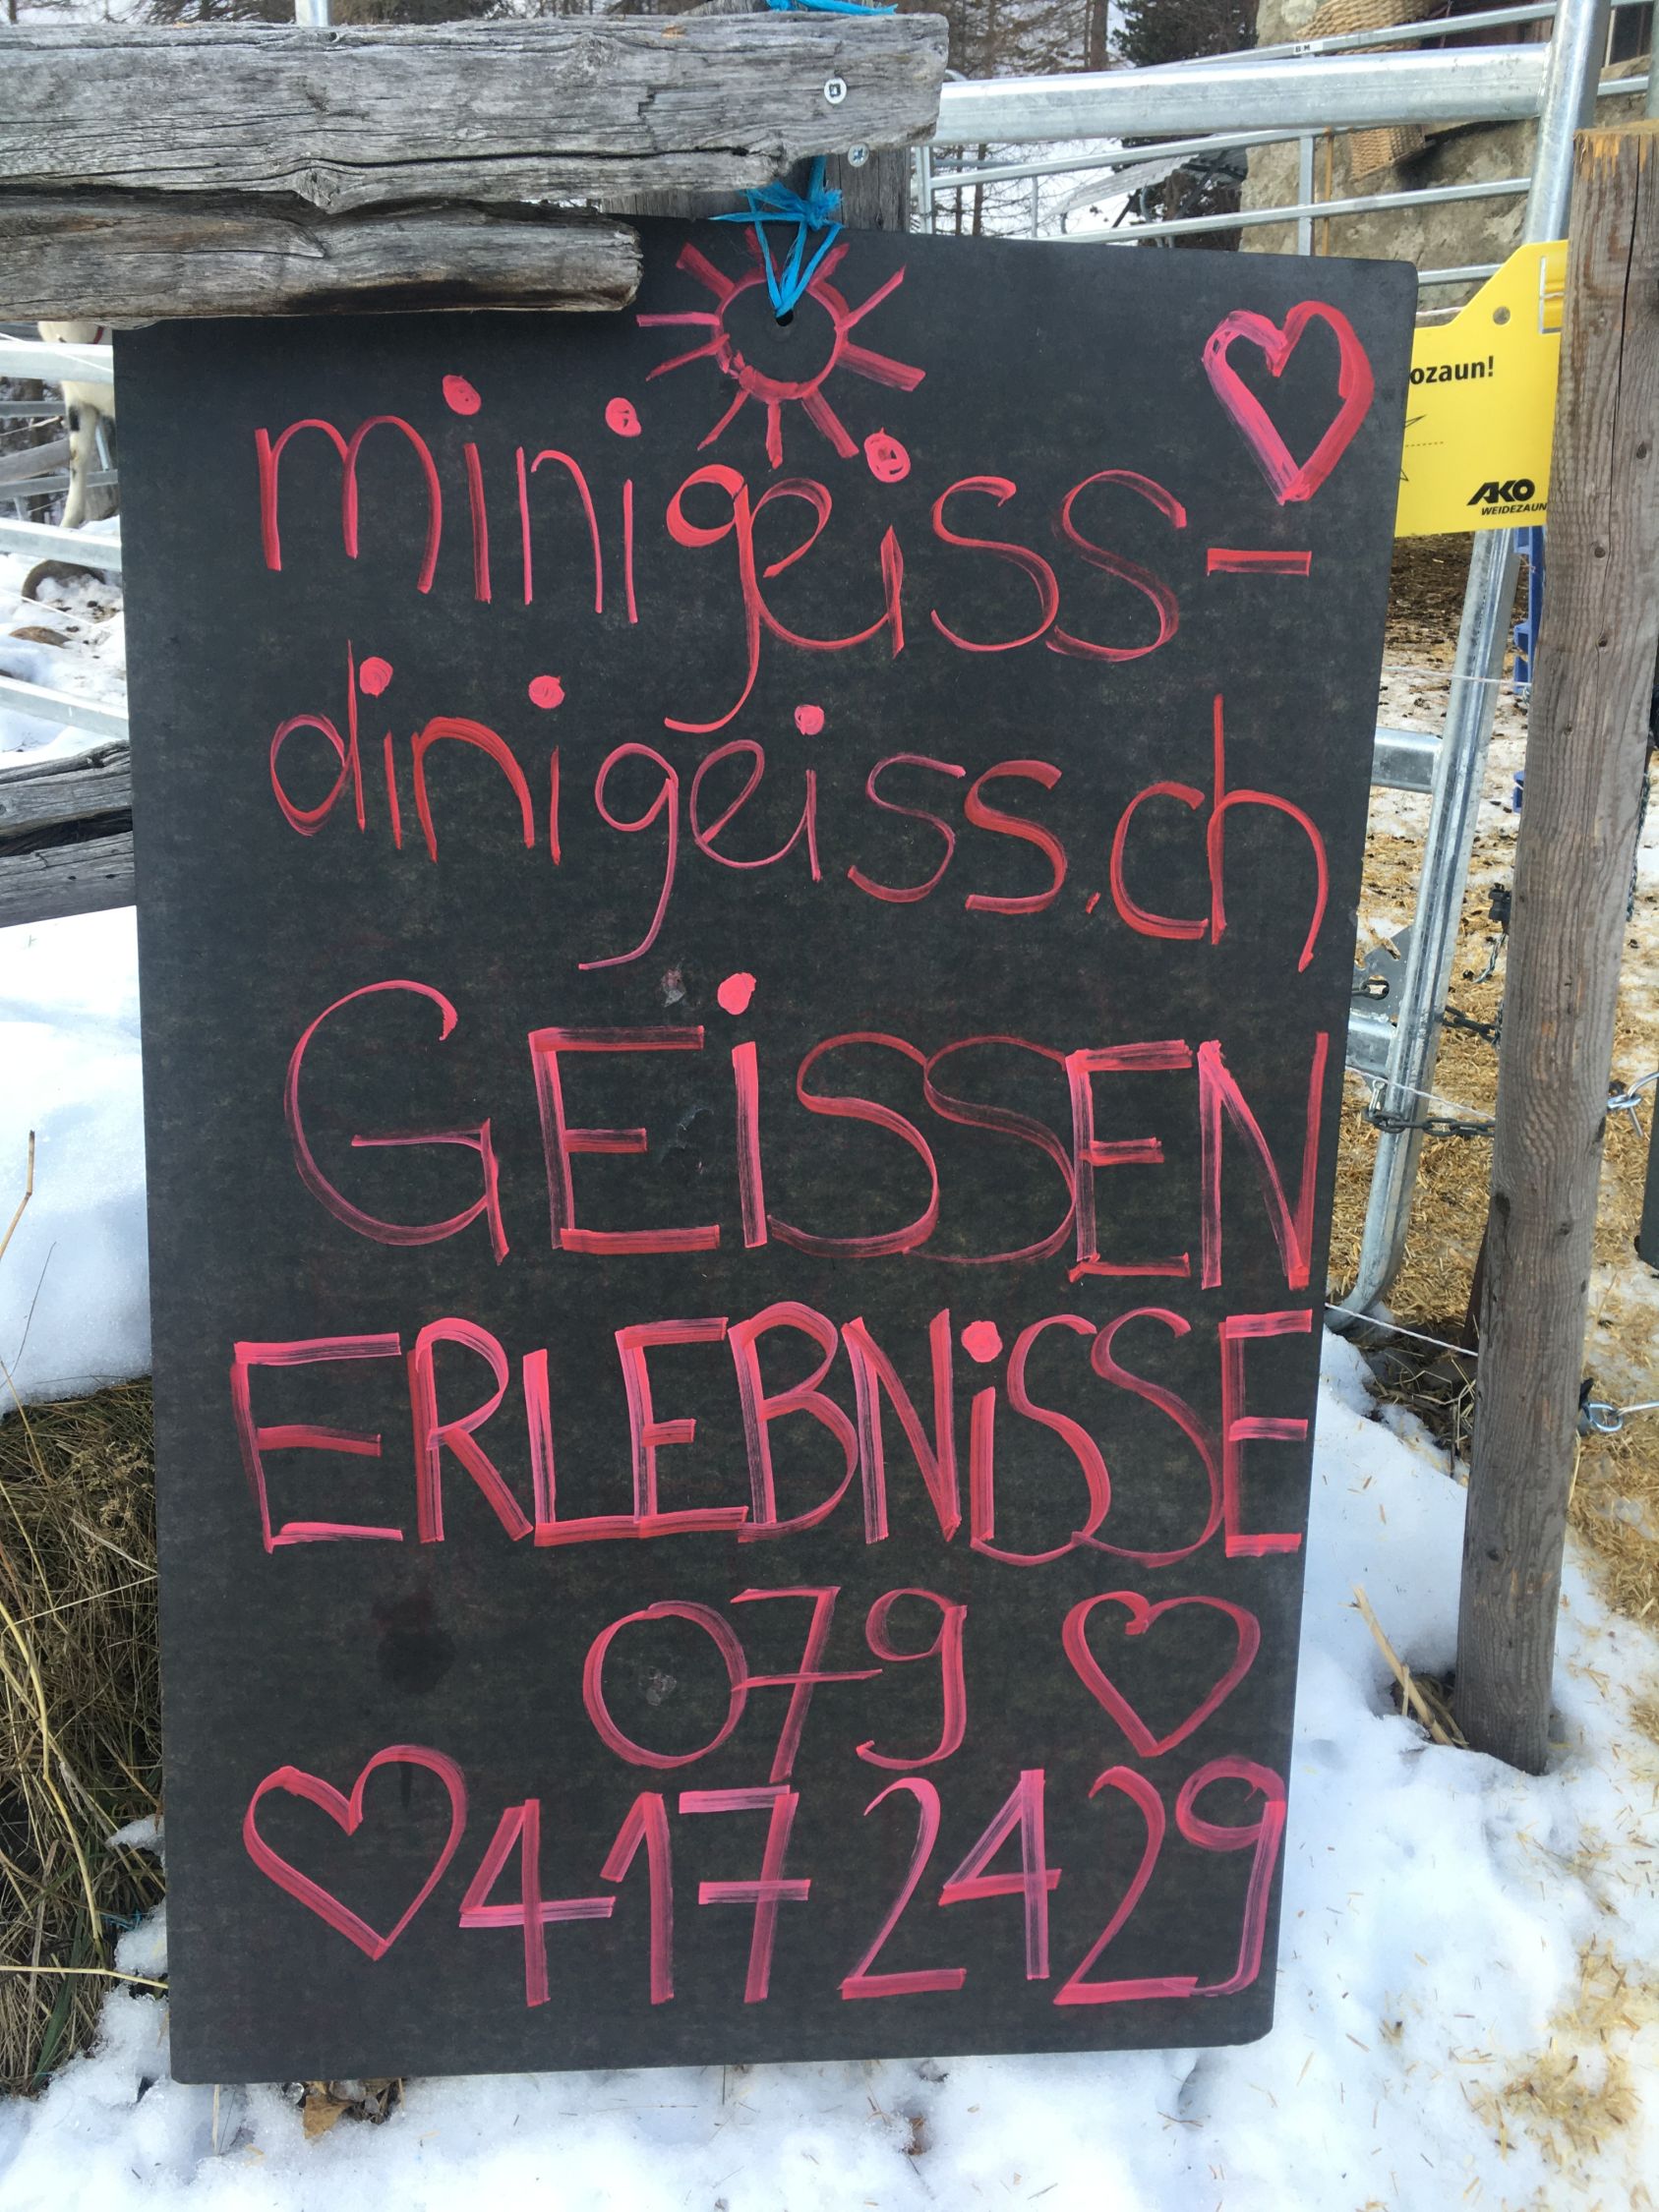 minigeiss-
dinigeiss.ch
GEiSSEN
ERLEBNiSSE
079
417 24 29
ozaun!
AKO
WEIDEZAUN